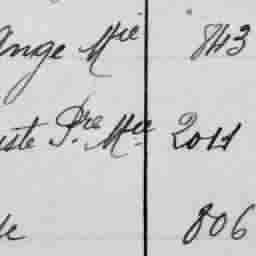 ange Mie 843
uste Pre Mie 2011
806